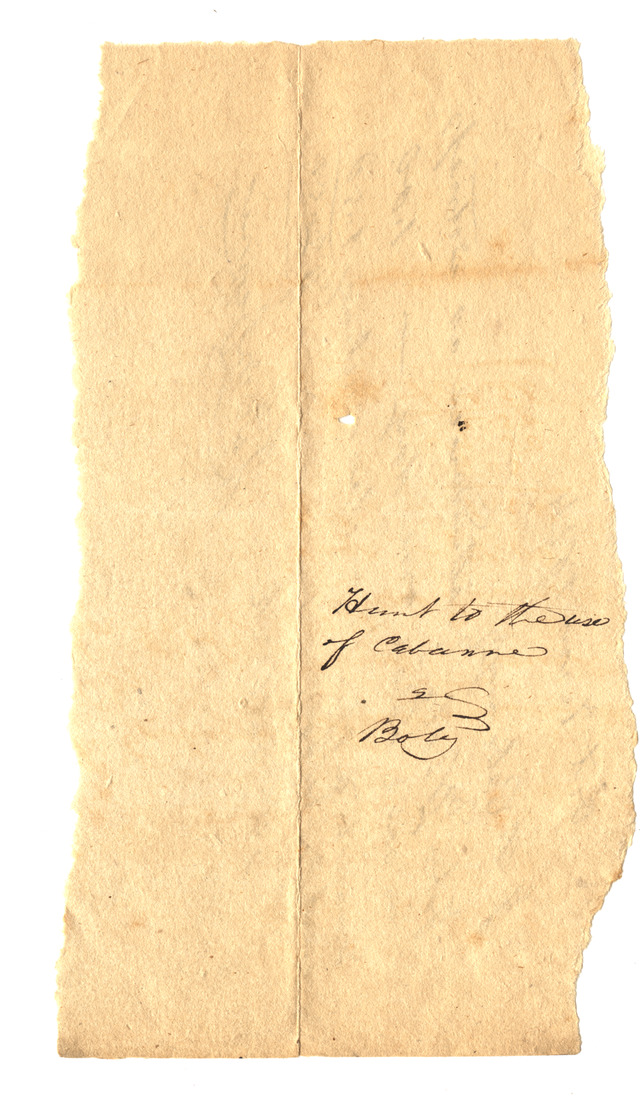 Hunt to the use
of Cabanne
vs
Boly